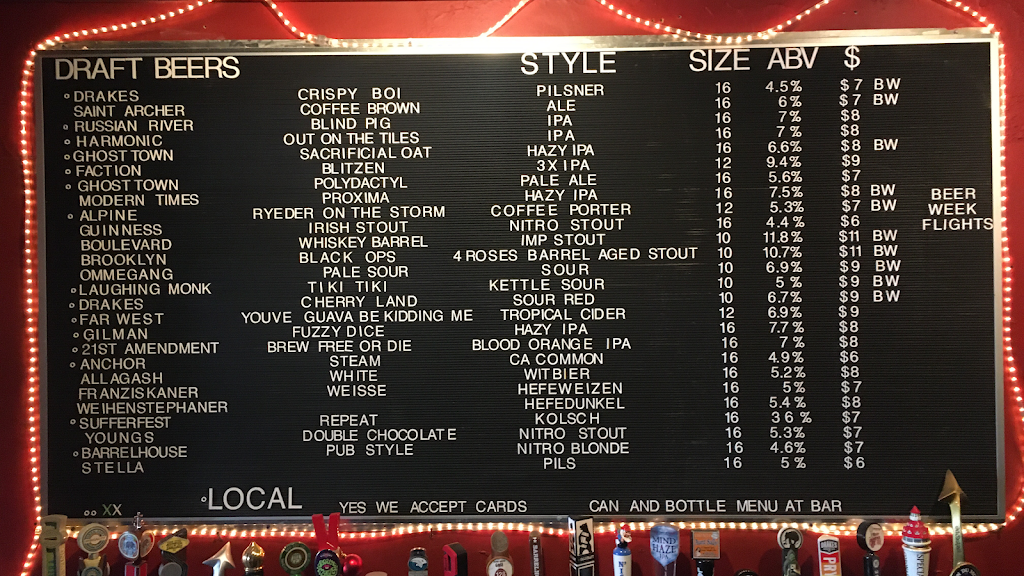 DRAFT BEERS STYLE SIZE ABV $
DRAKES CRISPY BOI PILSNER 16 4.5% $7 BW
SAINT ARCHER COFFEE BROWN ALE 16 6% $7 BW
RUSSIAN RIVER BLIND PIG IPA 16 7% $8
HARMONIC OUT ON THE TILES IPA 16 7% $8
GHOST TOWN SACRIFICIAL OAT HAZY IPA 16 6.6% $8 BW
FACTION BLITZEN 3X IPA 12 9.4% $9
GHOST TOWN POLYDACTYL PALE ALE 16 5.6% $7
MODERN TIMES PROXIMA HAZY IPA 16 7.5% $8 BW
ALPINE RYEDER ON THE STORM COFFEE PORTER 12 5.3% $7 BW
GUINNESS IRISH STOUT NITRO STOUT 16 4.4% $6
BOULEVARD WHISKEY BARREL IMP STOUT 10 11.8% $11 BW
BROOKLYN BLACK OPS 4 ROSES BARREL AGED STOUT 10 10.7% $11 BW
OMMEGANG PALE SOUR SOUR 10 6.9% $9 BW
LAUGHING MONK TIKI TIKI KETTLE SOUR 10 5% $9 BW
DRAKES CHERRY LAND SOUR RED 10 6.7% $9 BW
FAR WEST YOUVE GUAVA BE KIDDING ME TROPICAL CIDER 12 6.9% $9
GILMAN FUZZY DICE HAZY IPA 16 7.7% $8
21ST AMENDMENT BREW FREE OR DIE BLOOD ORANGE IPA 16 7% $8
ANCHOR STEAM CA COMMON 16 4.9% $6
ALLAGASH WHITE WITBIER 16 5.2% $8
FRANZISKANER WEISSE HEFEWEIZEN 16 5% $7
WEIHENSTEPHANER HEFEDUNKEL 16 5.4% $8
SUFFERFEST REPEAT KOLSCH 16 36% $7
YOUNGS DOUBLE CHOCOLATE NITRO STOUT 16 5.3% $7
BARRELHOUSE PUB STYLE NITRO BLONDE 16 4.6% $7
STELLA PILS 16 5% $6
BEER
WEEK
FLIGHTS
XX LOCAL YES WE ACCEPT CARDS CAN AND BOTTLE MENU AT BAR
MIND HAZE